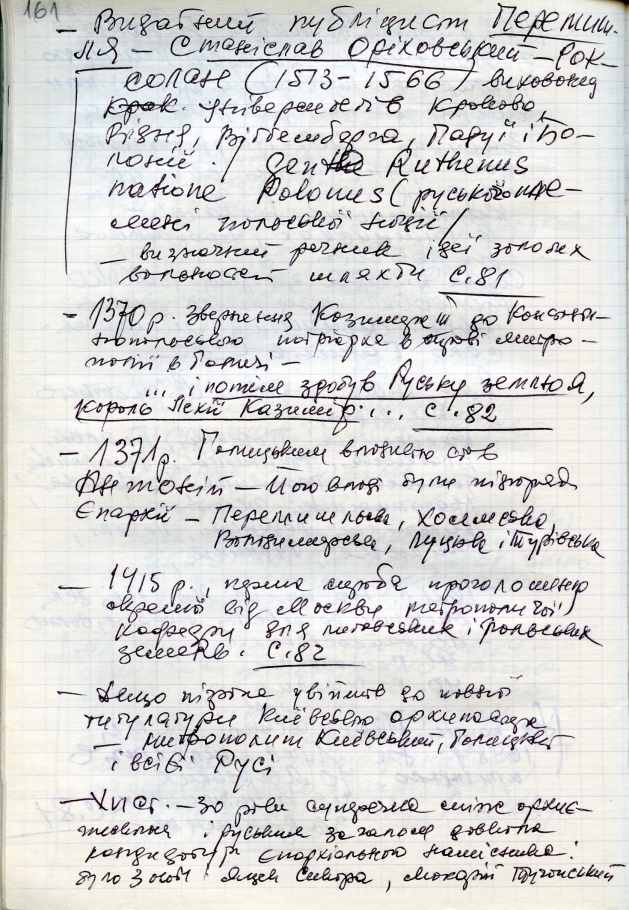 161
— Видатний публіцист Перемиш-
ля — Станіслав Оріховський — Рок-
солан (1513-1566) вихованец
університетів Кракова,
Відня, Віттемберга, Падуї і Бо-
лоньї. / gente Ruthenus
natione Polonus (руського пле-
мені польської нації /
— визначний речник ідеї золотих
вольностей шляхти С.81
— 1370 р. Звернення Казимежа III до Констан-
тинопольського патріарха в справі митро-
полії в Галичі —
... і потім здобув Руську землю я,
король Ляхії Казимір... С.82
— 1371 р. Галицьким владикою став
Антоній — Його владі були підпоряд.
Єпархії — Перемишльська, Холмська,
Володимирська, Луцька і Турівська
— 1415 р., перша спроба проголошення
окремої від Москви митрополичої
кафедри для литовських і польських
земель. С.82
— Дещо пізніше увійшов до повної
титулатури Київського архипастиря
— митрополит Київський, Галицький
і всієї Русі
— XVI ст. — 30 років суперечка між
і руським загалом довкола
кандидатури Єпархіального намісника.
було 3 особи: Яцек Сикора, Макарій Тучапський